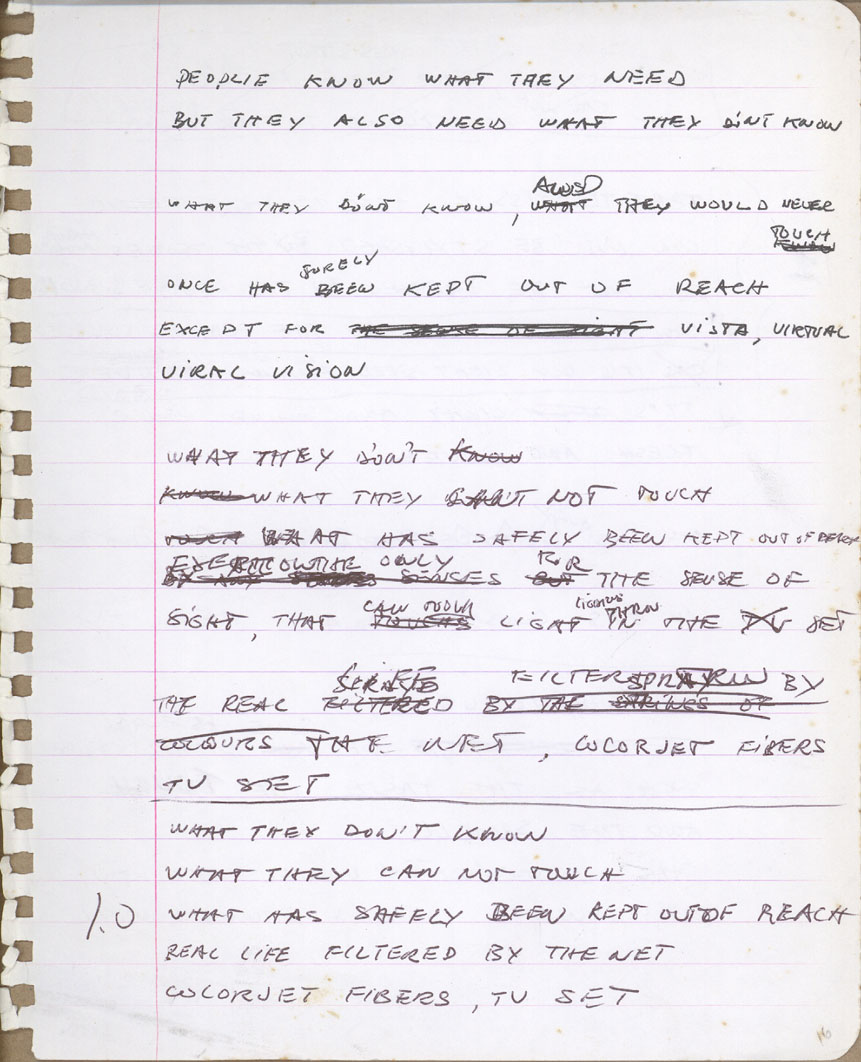 PEOPLE KNOW WHAT THEY NEED
BUT THEY ALSO NEED WHAT THEY DONT KNOW
AND
WHAT THEY DONT KNOW, WHAT THEY WOULD NEVER
TOUCH
SURELY
ONCE HAS BEEN KEPT OUT OF REACH
EXCEPT FOR THE SENSE OF SIGHT VISTA, VIRTUAL
VIRAL VISION
WHAT THEY DON'T KNOW
KNOW WHAT THEY NOT TOUCH
TOUCH WHAT HAS SAFELY BEEN KEPT OUT OF REACH
ONLY FOR
BY SENSES BUT THE SENSE OF
CAN TOUCH THRU
SIGHT, THAT TOUCHS LIGHT IN THE TV SET
FILTER BY
THE REAL FILTERED BY THE STRINGS OF
COLOURS THE NET, COLORJET FIBERS
TV SET
WHAT THEY DON'T KNOW
WHAT THEY CAN NOT TOUCH
1.0 WHAT HAS SAFELY BEEN KEPT OUT OF REACH
REAL LIFE FILTERED BY THE NET
COLORJET FIBERS, TV SET